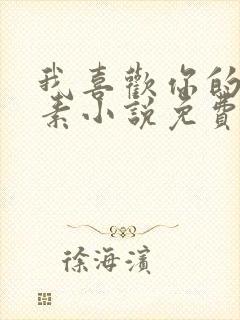 我喜歡你的
素小說免費
徐海濱